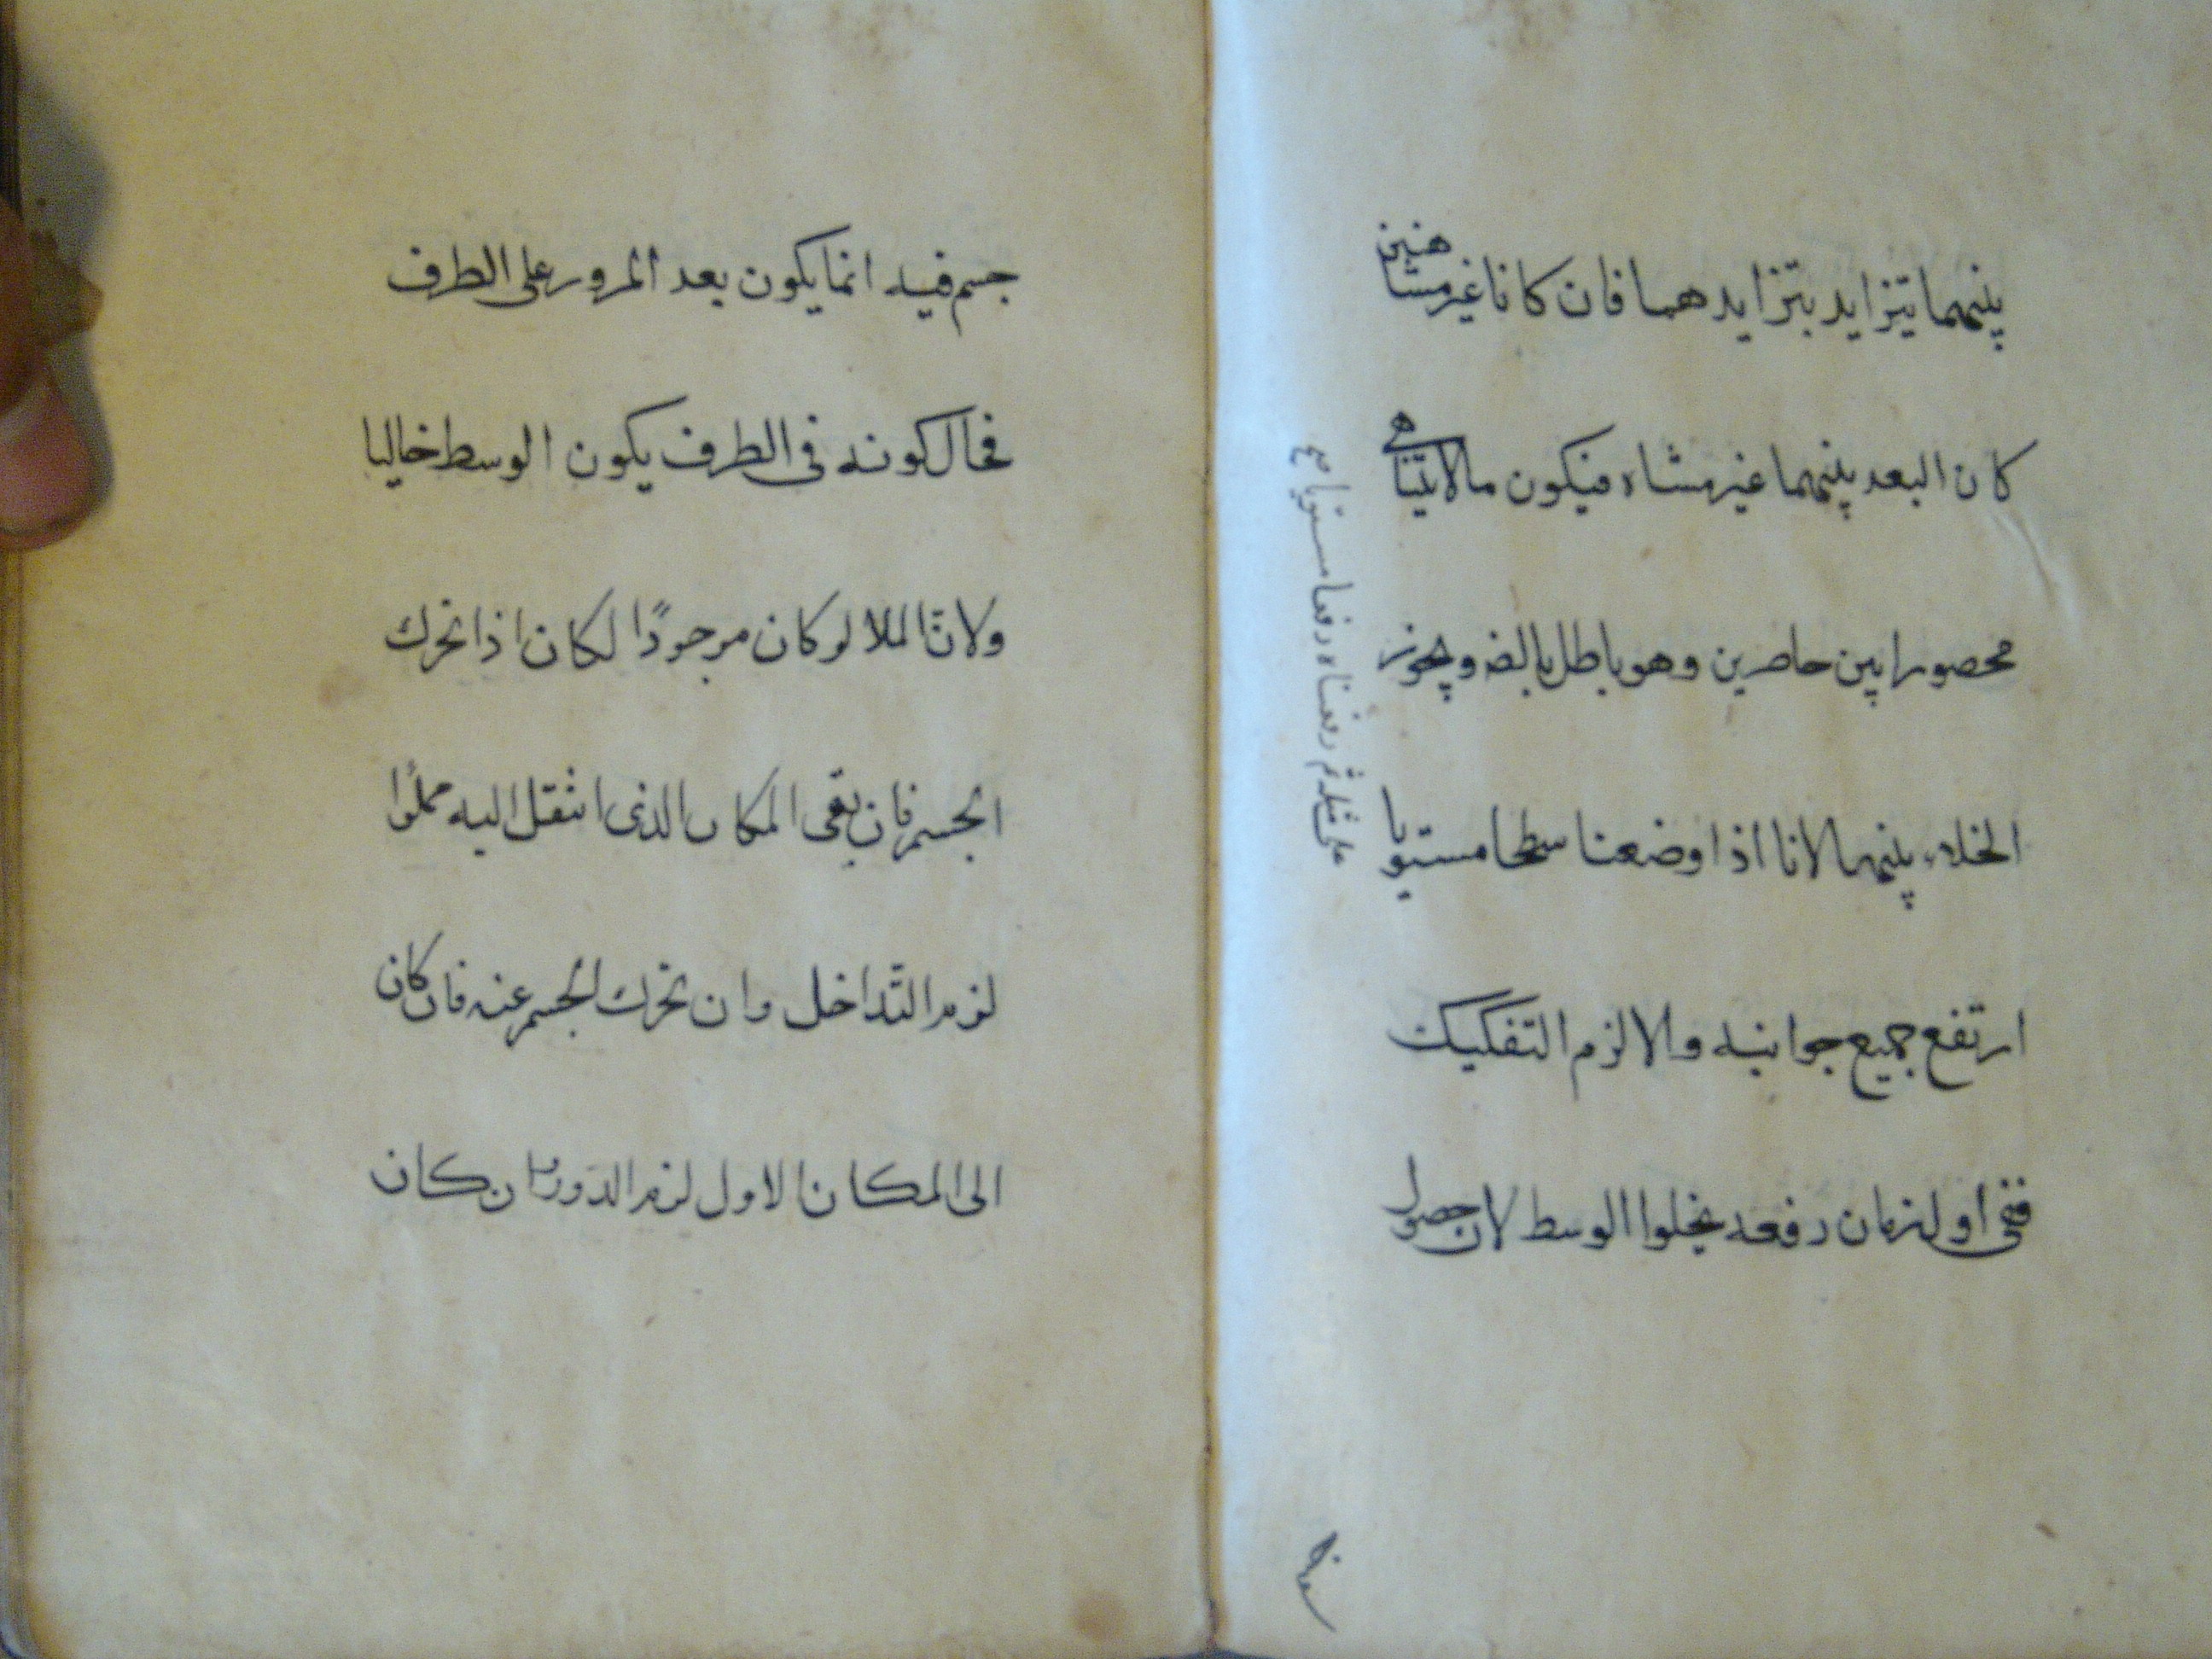 بينهما يتزايد بتزايدهما فان كانا غير متناهيين
كان البعد بينهما غير متناه فيكون مالايتناهى
محصورا بين حاصرين وهو باطل بالضرورة ويجوز
الخلاء بينهما لانا اذا وضعنا سطحا مستويا
على مثله ثم رفعناه رفعا مستويا صح
ارتفع جميع جوانبه والا لزم التفكيك
ففى اول زمان رفعه يخلوا الوسط لان حصول
جسم فيه انما يكون بعد المرور على الطرف
فحال كونه فى الطرف يكون الوسط خاليا
ولانّ الملا لو كان موجودًا لكان اذا تحرك
الجسم فان بقى المكان الذى انتقل اليه مملوًا
لزم التّداخل وان تحرك الجسم عنه فان كان
الى المكان الاول لزم الدور وان كان